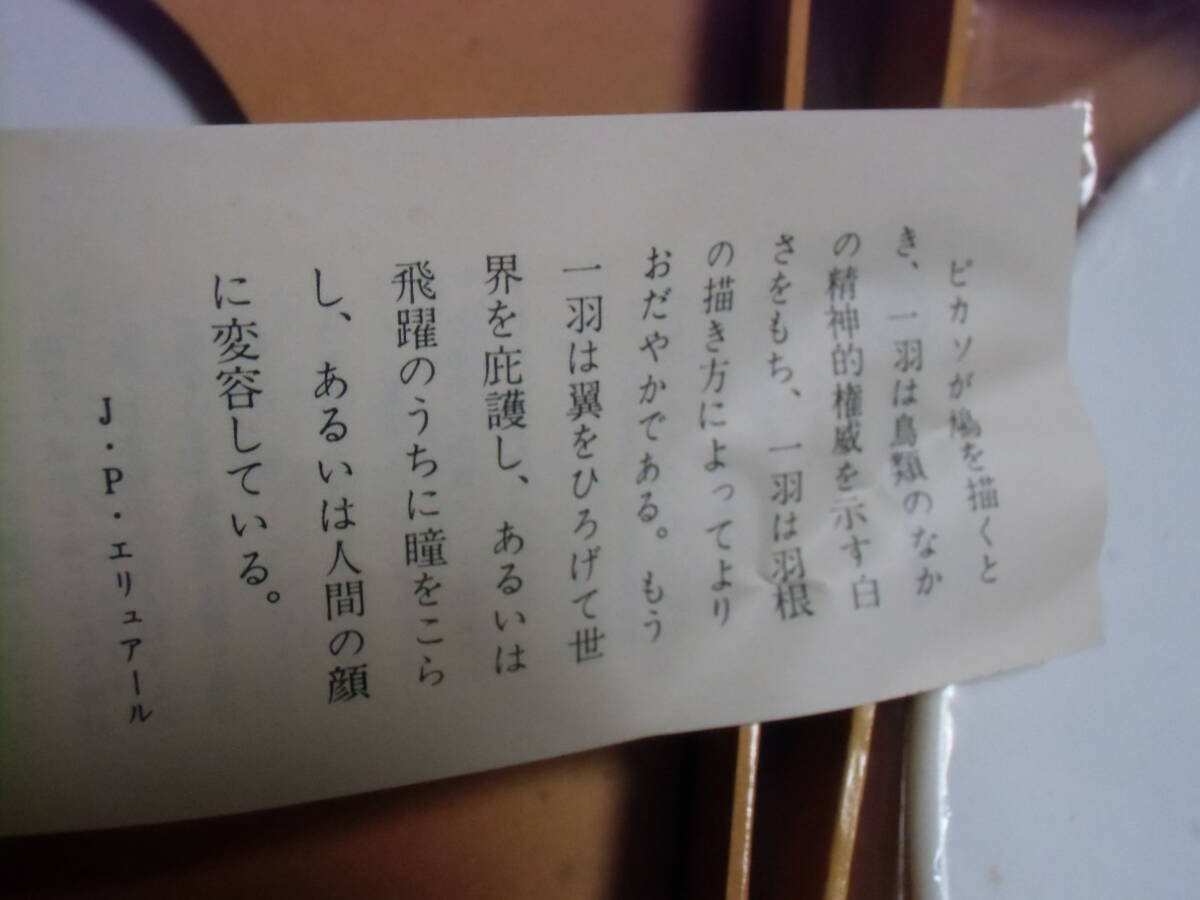 ピカソが鳩を描くと
き、一羽は鳥類のなか
の精神的権威を示す白
さをもち、一羽は羽根
の描き方によってより
おだやかである。もう
一羽は翼をひろげて世
界を庇護し、あるいは
飛躍のうちに瞳をこら
し、あるいは人間の顔
に変容している。
J・P・エリュアール